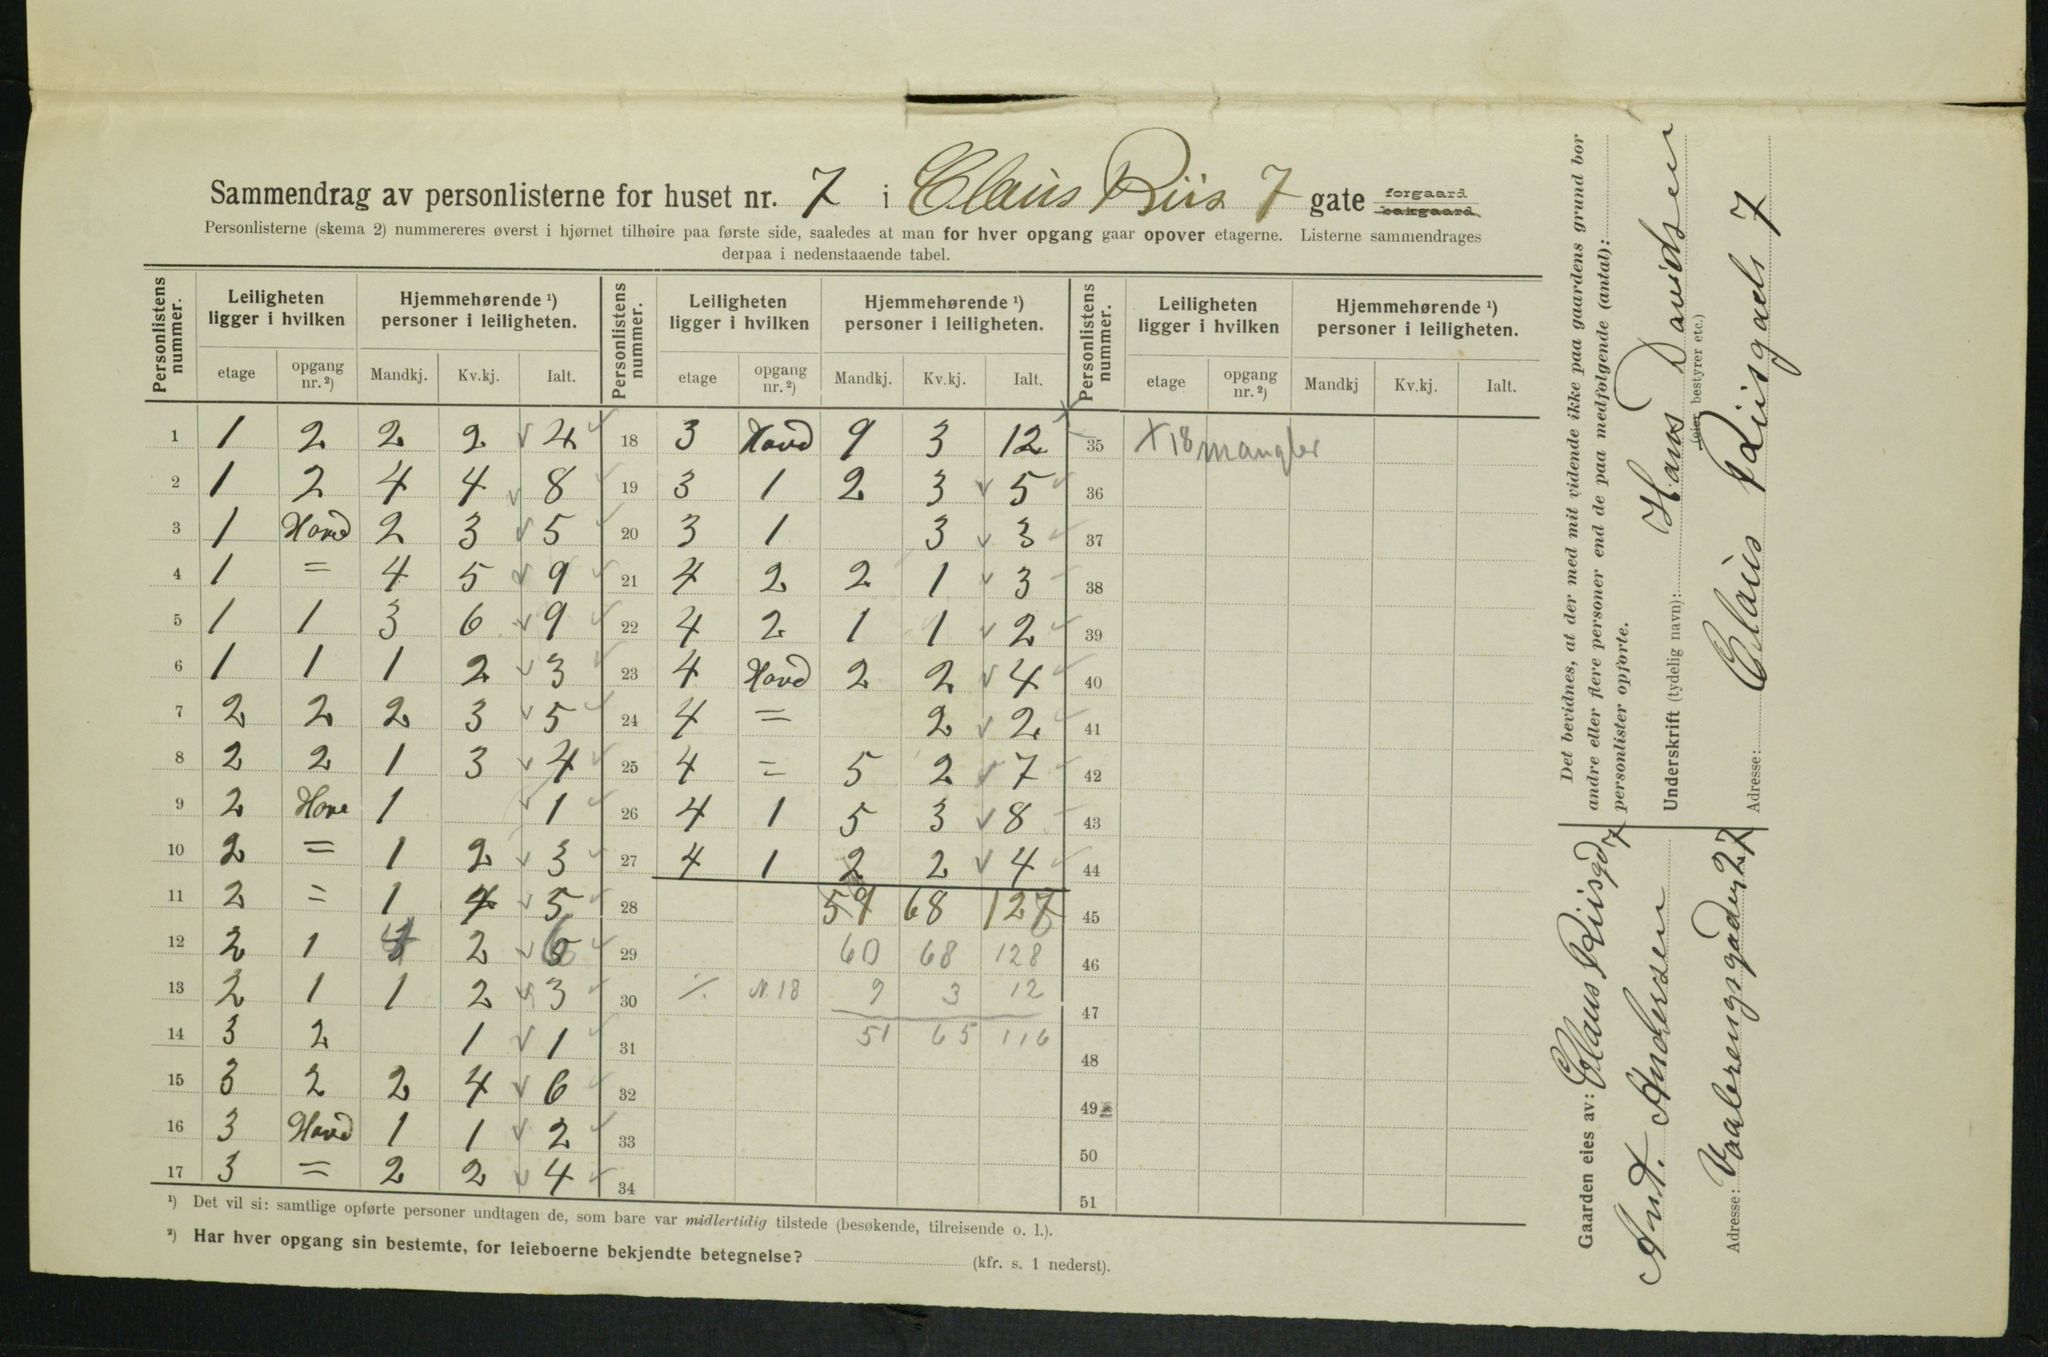 Sammendrag av personlisterne for huset nr. 7 i Claus Riis 7 gate forgaard bakgaard.
Personlisterne (skema 2) nummereres øverst i hjørnet tilhøire paa første side, saaledes at man for hver opgang gaar opover etagerne. Listerne sammendrages
derpaa i nedenstaaende tabel.
Personlistens nummer. Leiligheten ligger i hvilken Hjemmehørende ¹) personer i leiligheten.
etage opgang nr. ²) Mandkj. Kv.kj. Ialt.
1 1 2 2 2 4
2 1 2 4 4 8
3 1 Hoved 2 3 5
4 1 = 4 5 9
5 1 1 3 6 9
6 1 1 1 2 3
7 2 2 2 3 5
8 2 2 1 3 4
9 2 Hove 1 1
10 2 = 1 2 3
11 2 = 1 4 5
12 2 1 4 2 6
13 2 1 1 2 3
14 3 2 1 1
15 3 2 2 4 6
16 3 Hoved 1 1 2
17 3 = 2 2 4
Personlistens nummer. Leiligheten ligger i hvilken Hjemmehørende ¹) personer i leiligheten.
etage opgang nr. ²) Mandkj. Kv.kj. Ialt.
18 3 Hoved 9 3 12
19 3 1 2 3 5
20 3 1 3 3
21 4 2 2 1 3
22 4 2 1 1 2
23 4 Hoved 2 2 4
24 4 = 2 2
25 4 = 5 2 7
26 4 1 5 3 8
27 4 1 2 2 4
28 59 68 127
29 60 68 128
30 ./. N. 18 9 3 12
31 51 65 116
32
33
34
Personlistens nummer. Leiligheten ligger i hvilken Hjemmehørende ¹) personer i leiligheten.
etage opgang nr. ²) Mandkj Kv.kj. Ialt.
35 X 18 mangler
36
37
38
39
40
41
42
43
44
45
46
47
48
49
50
51
¹) Det vil si: samtlige opførte personer undtagen de, som bare var midlertidig tilstede (besøkende, tilreisende o. l.).
²) Har hver opgang sin bestemte, for leieboerne bekjendte betegnelse? (kfr. s. 1 nederst).
Det bevidnes, at der med mit vidende ikke paa gaardens grund bor
andre eller flere personer end de paa medfølgende (antal):
personlister opførte.
Underskrift (tydelig navn): Hans Davidsen
(eier, bestyrer etc.)
Adresse: Claus Riisgade 7
Gaarden eies av: Claus Riisgd 7
Ant. Andersen
Adresse: Vaalerengsgaden 27